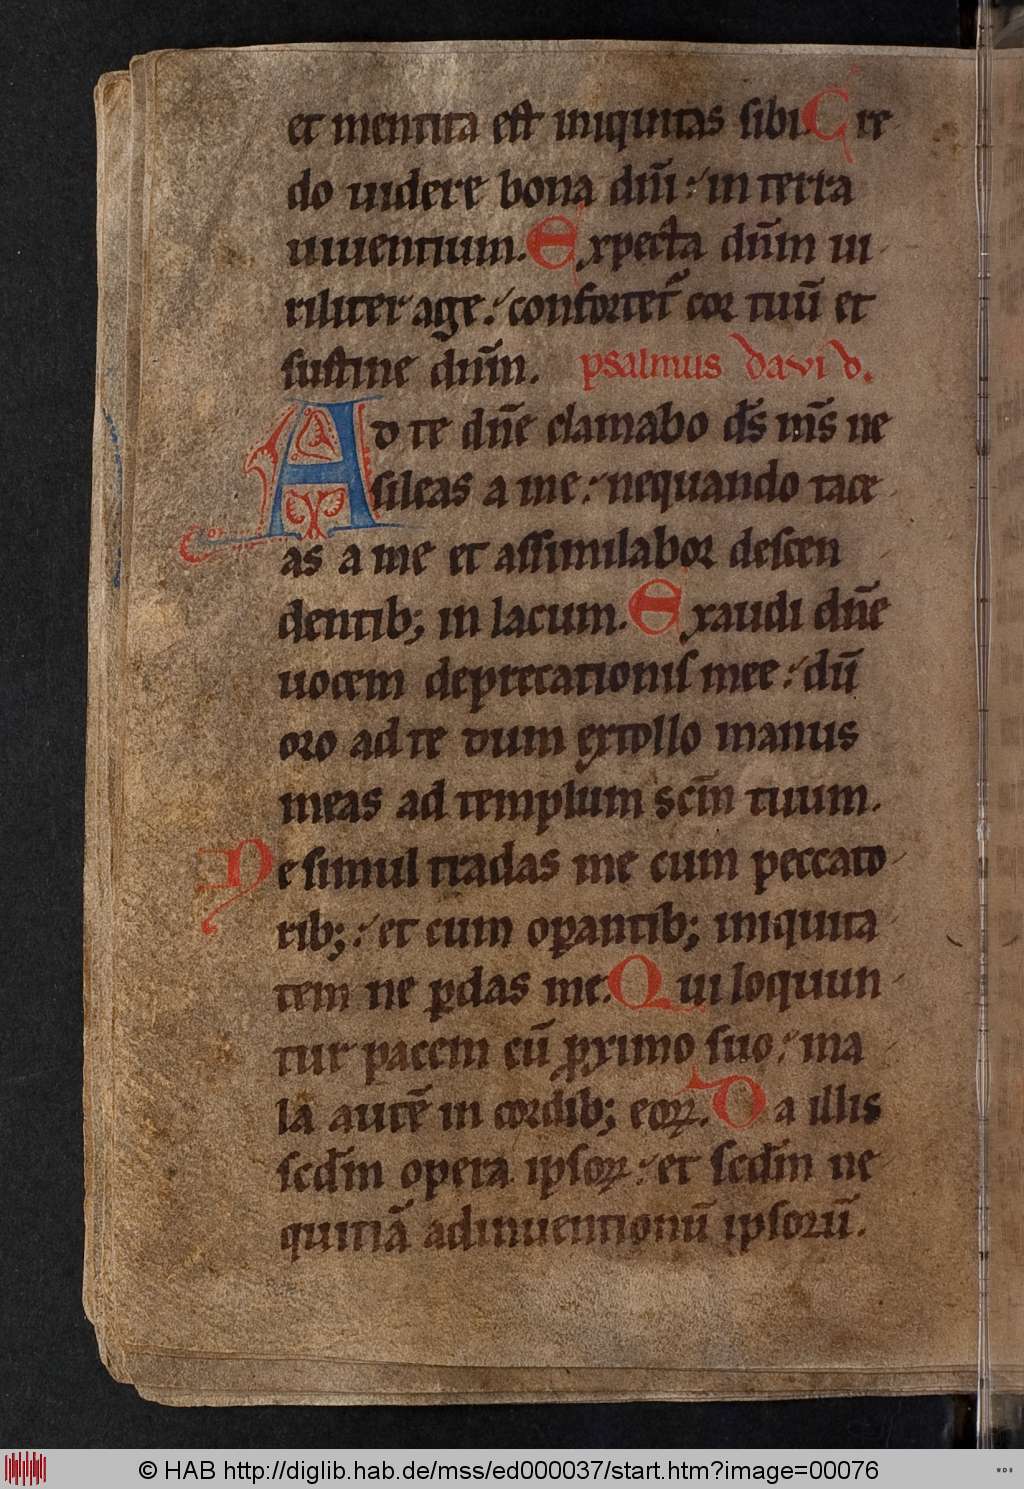 et mentita est iniquitas sibi. Cre
do uidere bona dn̄i : in terra
uiuentium. Expecta dn̄m ui
riliter age : confortet᷑ cor tuū et
sustine dn̄m. psalmus david.
AD te dn̄e clamabo ds̄ ms̄ ne
sileas a me : nequando tace
as a me et assimilabor descen
dentib; in lacum. Exaudi dn̄e
uocem deprecationis mee : dū
oro ad te dum extollo manus
meas ad templum scm̄ tuum.
Ne simul tradas me cum peccato
rib; : et cum oꝑantib; iniquita
tem ne ꝑdas me. Qui loquun
tur pacem cū ꝓximo suo : ma
la autē in cordib; eoꝝ. Da illis
scdm̄ opera ipsoꝝ : et scdm̄ ne
quitiā adinuentionū ipsorū.
© HAB http://diglib.hab.de/mss/ed000037/start.htm?image=00076